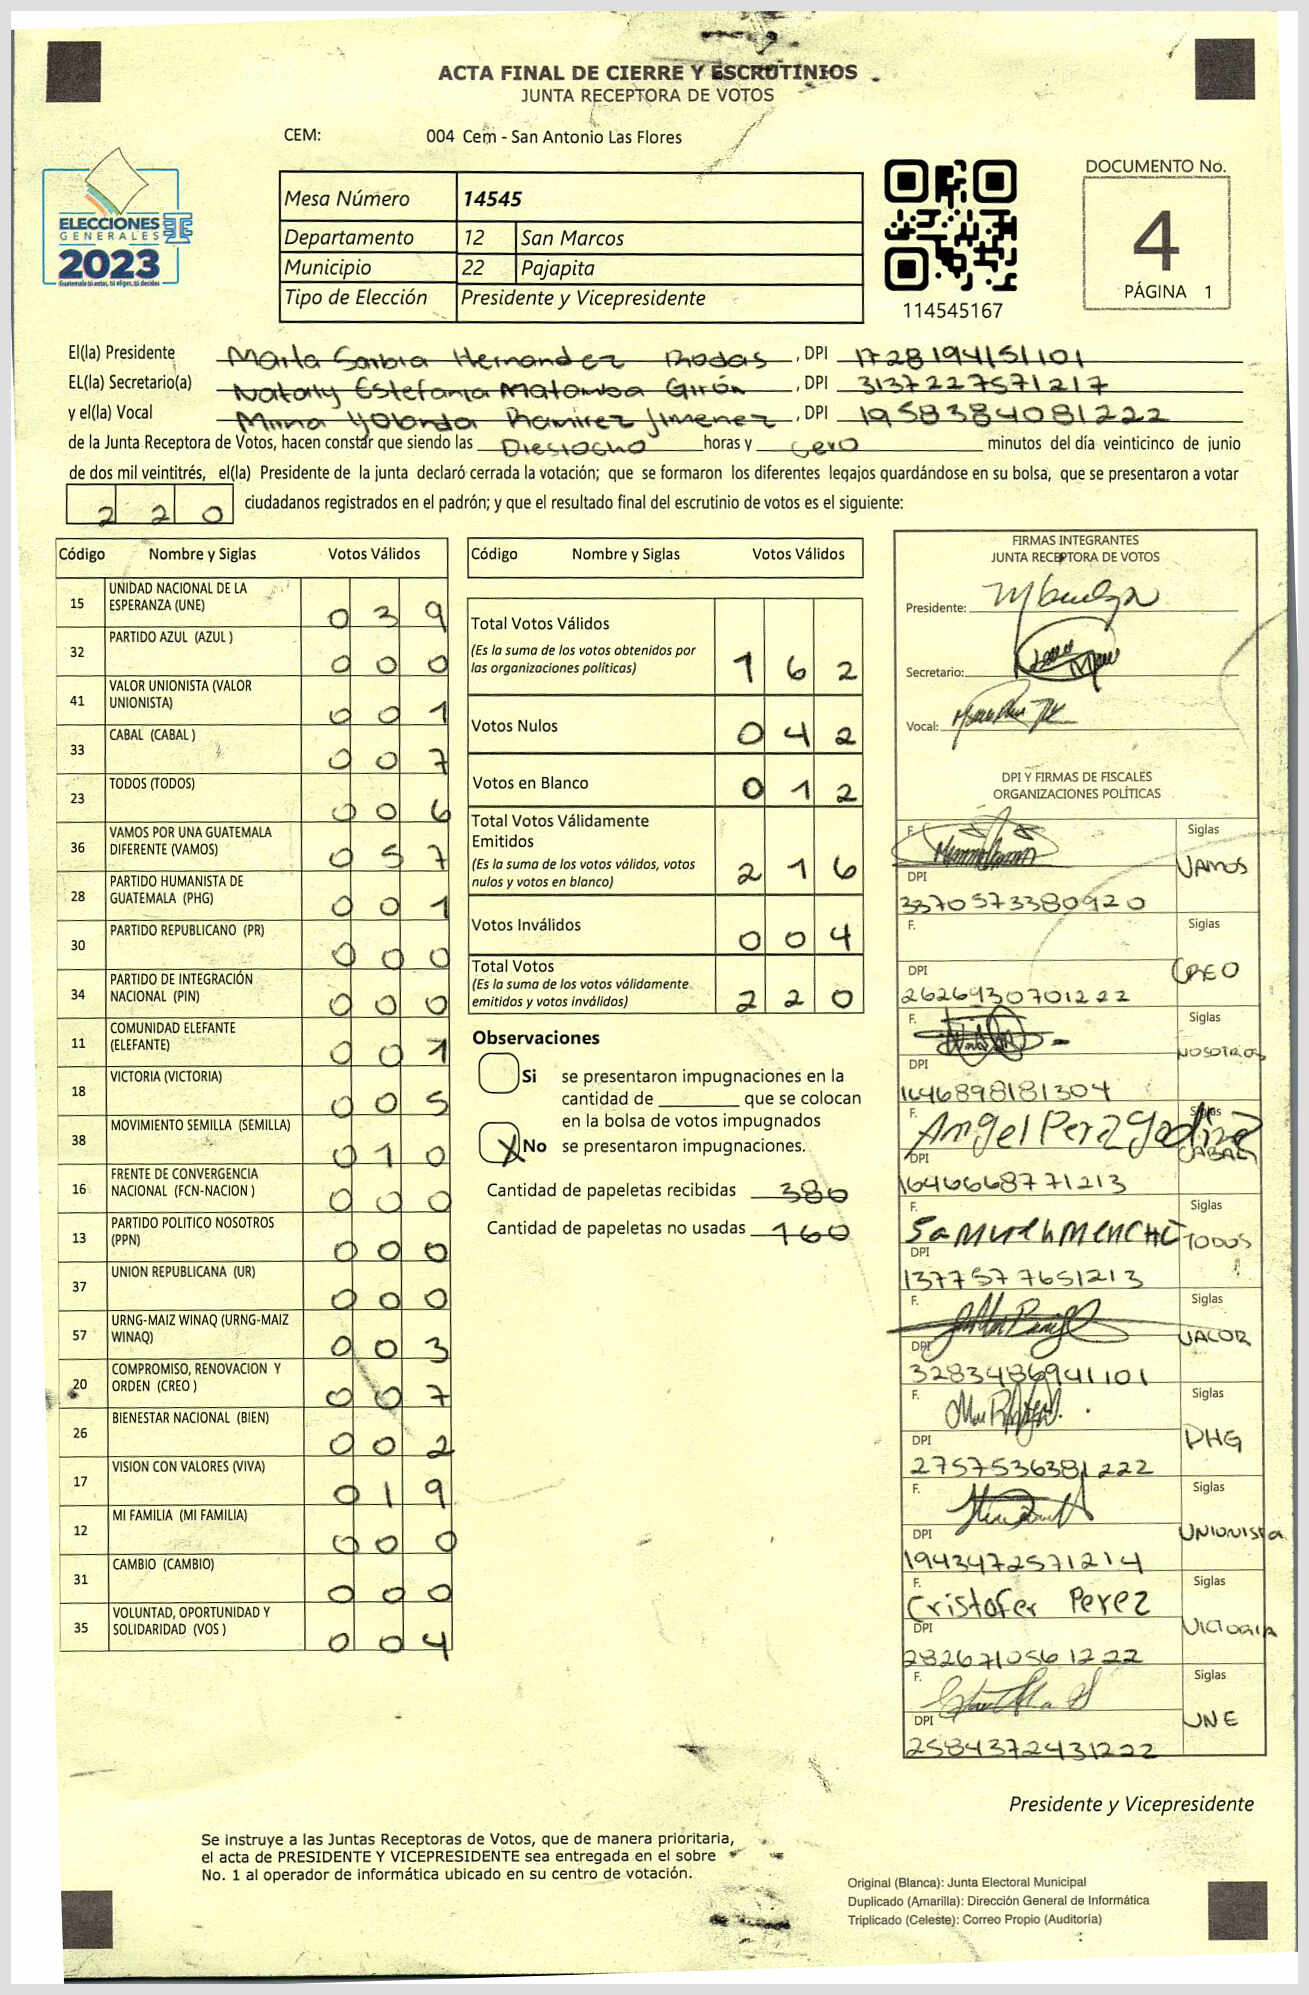 ACTA FINAL DE CIERRE Y ESCRUTINIOS
JUNTA RECEPTORA DE VOTOS
CEM: 004 Cem - San Antonio Las Flores
ELECCIONES
GENERALES
2023
Guatemala tú estás, tú eliges, tú decides
Mesa Número 14545
Departamento 12 San Marcos
Municipio 22 Pajapita
Tipo de Elección Presidente y Vicepresidente
114545167
DOCUMENTO No.
4
PÁGINA 1
El(la) Presidente Marla Sarbia Hernandez Rodas, DPI 1728194151101
EL(la) Secretario(a) Nataly Estefania Matamba Girón, DPI 3137227571217
y el(la) Vocal Mirna Yolanda Ramirez Jimenez, DPI 1958384081222
de la Junta Receptora de Votos, hacen constar que siendo las Diesiocho horas y cero minutos del día veinticinco de junio
de dos mil veintitrés, el(la) Presidente de la junta declaró cerrada la votación; que se formaron los diferentes legajos guardándose en su bolsa, que se presentaron a votar
220 ciudadanos registrados en el padrón; y que el resultado final del escrutinio de votos es el siguiente:
Código Nombre y Siglas Votos Válidos
15 UNIDAD NACIONAL DE LA ESPERANZA (UNE) 039
32 PARTIDO AZUL (AZUL ) 000
41 VALOR UNIONISTA (VALOR UNIONISTA) 001
33 CABAL (CABAL ) 007
23 TODOS (TODOS) 006
36 VAMOS POR UNA GUATEMALA DIFERENTE (VAMOS) 057
28 PARTIDO HUMANISTA DE GUATEMALA (PHG) 001
30 PARTIDO REPUBLICANO (PR) 000
34 PARTIDO DE INTEGRACIÓN NACIONAL (PIN) 000
11 COMUNIDAD ELEFANTE (ELEFANTE) 001
18 VICTORIA (VICTORIA) 005
38 MOVIMIENTO SEMILLA (SEMILLA) 010
16 FRENTE DE CONVERGENCIA NACIONAL (FCN-NACION ) 000
13 PARTIDO POLITICO NOSOTROS (PPN) 000
37 UNION REPUBLICANA (UR) 000
57 URNG-MAIZ WINAQ (URNG-MAIZ WINAQ) 003
20 COMPROMISO, RENOVACION Y ORDEN (CREO ) 007
26 BIENESTAR NACIONAL (BIEN) 002
17 VISION CON VALORES (VIVA) 019
12 MI FAMILIA (MI FAMILIA) 000
31 CAMBIO (CAMBIO) 000
35 VOLUNTAD, OPORTUNIDAD Y SOLIDARIDAD (VOS ) 004
Código Nombre y Siglas Votos Válidos
Total Votos Válidos
(Es la suma de los votos obtenidos por
las organizaciones políticas) 162
Votos Nulos 042
Votos en Blanco 012
Total Votos Válidamente
Emitidos
(Es la suma de los votos válidos, votos
nulos y votos en blanco) 216
Votos Inválidos 004
Total Votos
(Es la suma de los votos válidamente
emitidos y votos inválidos) 220
Observaciones
Si se presentaron impugnaciones en la
cantidad de ________ que se colocan
en la bolsa de votos impugnados
X No se presentaron impugnaciones.
Cantidad de papeletas recibidas 380
Cantidad de papeletas no usadas 160
FIRMAS INTEGRANTES
JUNTA RECEPTORA DE VOTOS
Presidente:
Secretario:
Vocal:
DPI Y FIRMAS DE FISCALES
ORGANIZACIONES POLÍTICAS
F. Siglas VAMOS
DPI 3370573380920
F. Siglas CREO
DPI 2626930701222
F. Siglas NOSOTROS
DPI 1646898181304
F. Angel Perz Siglas CABAL
DPI 1646668771213
F. Siglas TODOS
DPI 1377577651213
F. Siglas VALOR
DPI 3283486941101
F. Siglas PHG
DPI 2757536381222
F. Siglas UNIONISTA
DPI 1943472571214
F. Cristofer Perez Siglas VICTORIA
DPI 2826710561222
F. Siglas UNE
DPI 2584372431222
Presidente y Vicepresidente
Se instruye a las Juntas Receptoras de Votos, que de manera prioritaria,
el acta de PRESIDENTE Y VICEPRESIDENTE sea entregada en el sobre
No. 1 al operador de informática ubicado en su centro de votación.
Original (Blanca): Junta Electoral Municipal
Duplicado (Amarilla): Dirección General de Informática
Triplicado (Celeste): Correo Propio (Auditoría)